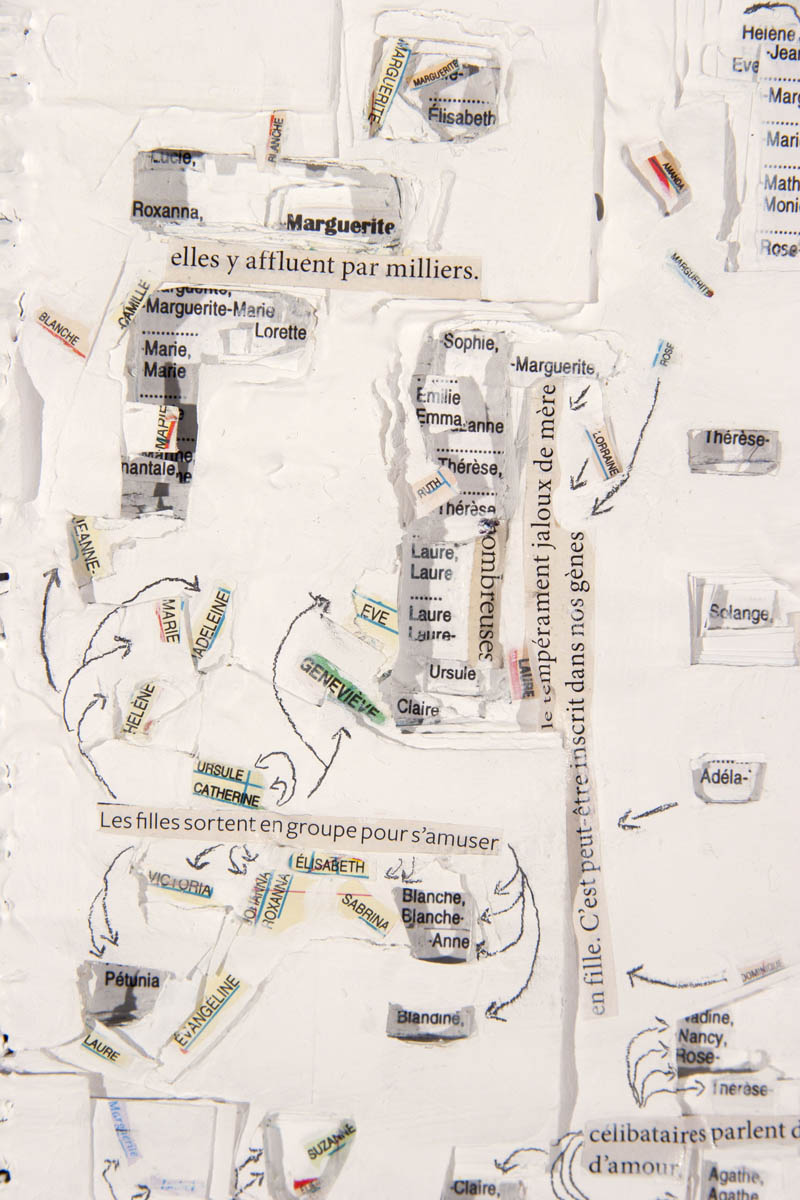 MARGUERITE
MARGUERITE
Élisabeth
Hélène,
-Jean
Eve
BLANCHE
Lucie,
Roxanna,
Marguerite
AMANDA
elles y affluent par milliers.
MARGUERITE
CAMILLE
BLANCHE
Marguerite,
-Marguerite-Marie
Lorette
-Marie,
Marie
MARIE
Sophie,
-Marguerite,
ROSE
Émilie
Emma
Thérèse,
RUTH
Thérèse
LORRAINE
Thérèse-
le tempérament jaloux de mère
en fille. C'est peut-être inscrit dans nos gènes
JEANNE-
Laure,
Laure
Laure
Laure-
Ursule
Claire
LAURE
Solange,
MARIE
EVE
GENEVIÈVE
HÉLÈNE
URSULE
CATHERINE
Adéla-
Les filles sortent en groupe pour s'amuser
VICTORIA
ÉLISABETH
ROXANNA
SABRINA
Blanche,
Blanche-
-Anne
Pétunia
ÉVANGÉLINE
Blandine,
LAURE
DOMINIQUE
Nancy,
Rose-
Thérèse-
Marguerite
SUZANNE
célibataires parlent d
d'amour,
-Claire,
Agathe,
Agathe